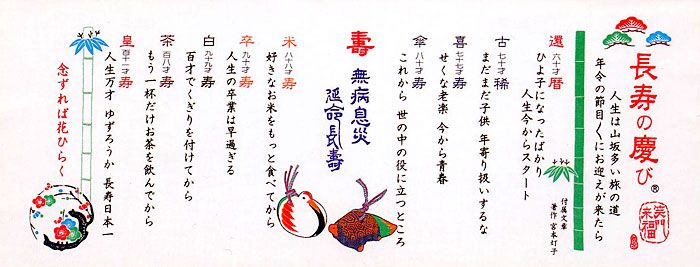 長寿の慶び®
人生は山坂多い旅の道
年令の節目〱にお迎えが来たら
笑門来福
還暦 六十才
ひよ子になったばかり
人生今からスタート
付属文章
著作 宮本灯子
古稀 七十才
まだまだ子供 年寄り扱いするな
喜寿 七十七才
せくな老楽 今から青春
傘寿 八十才
これから 世の中の役に立つところ
壽
無病息災
延命長壽
米寿 八十八才
好きなお米をもっと食べてから
卒寿 九十才
人生の卒業は早過ぎる
白寿 九十九才
百才でくぎりを付けてから
茶寿 百八才
もう一杯だけお茶を飲んでから
皇寿 百十一才
人生万才 ゆずろうか 長寿日本一
念ずれば花ひらく